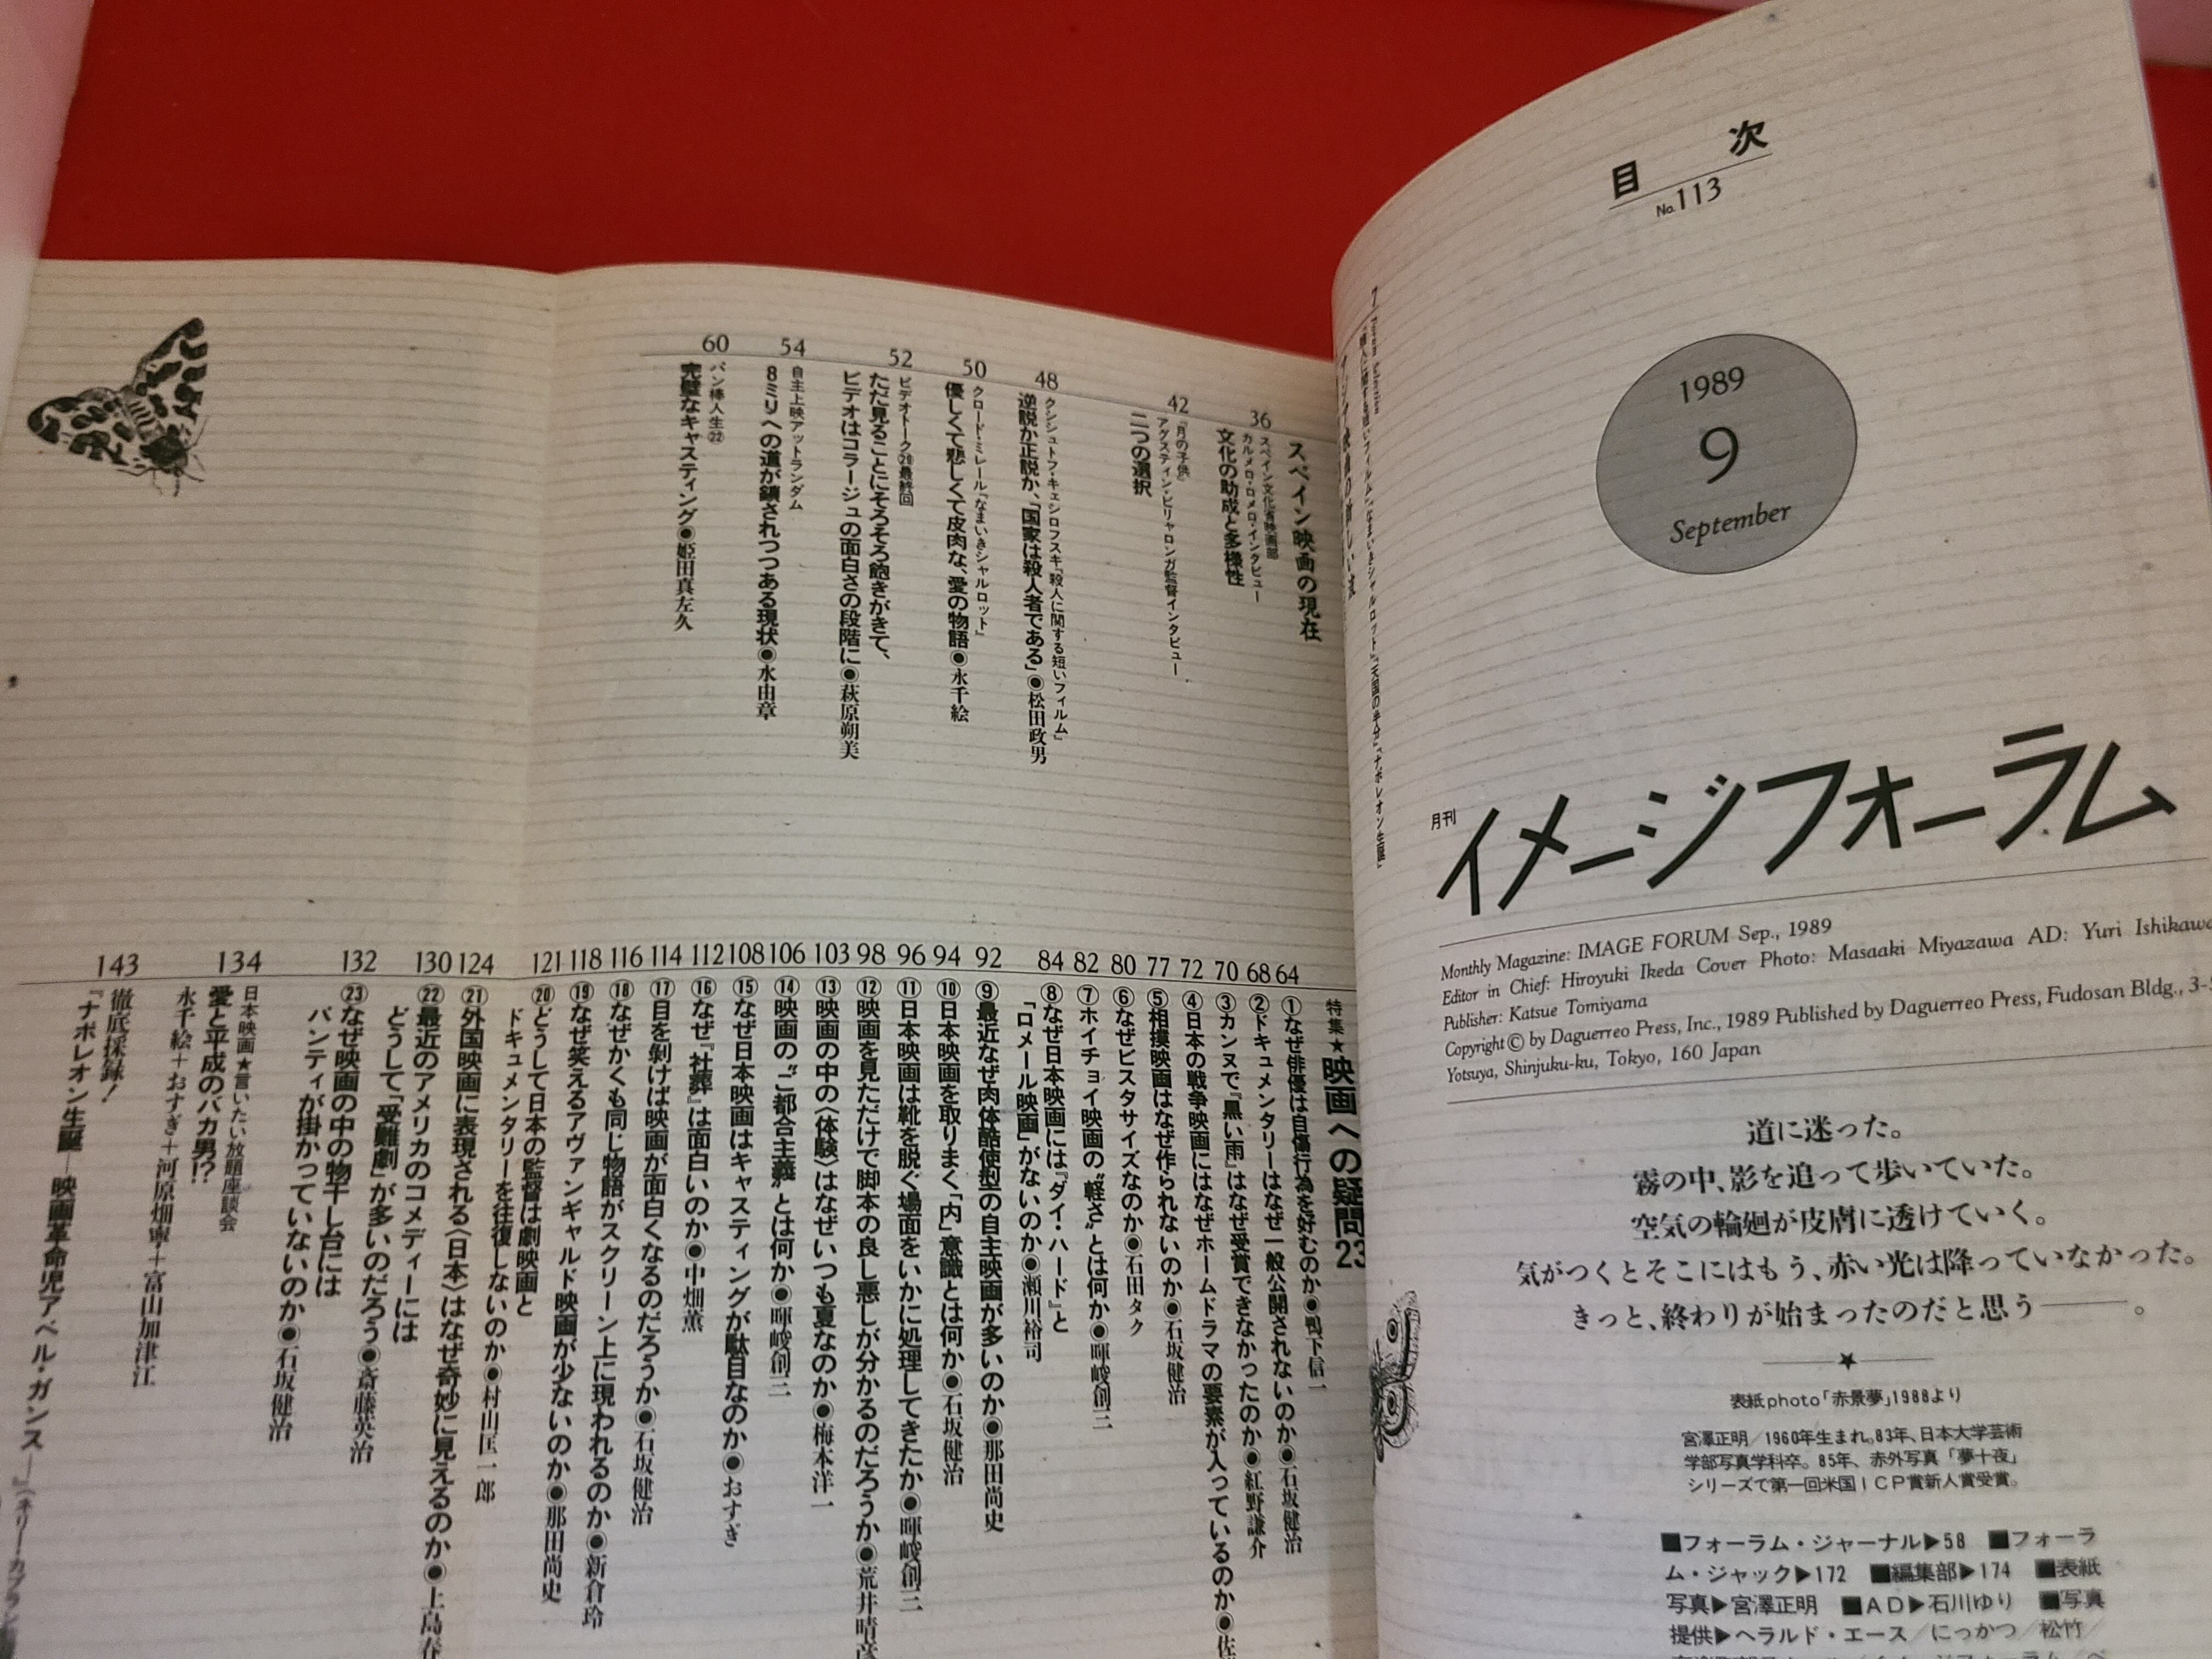 目次
No.113
1989
9
September
月刊
イメージフォーラム
Monthly Magazine: IMAGE FORUM Sep., 1989
Editor in Chief: Hiroyuki Ikeda Cover Photo: Masaaki Miyazawa AD: Yuri Ishikawa
Publisher: Katsue Tomiyama
Copyright © by Daguerreo Press, Inc., 1989 Published by Daguerreo Press, Fudosan Bldg., 3-5
Yotsuya, Shinjuku-ku, Tokyo, 160 Japan
道に迷った。
霧の中、影を追って歩いていた。
空気の輪廻が皮膚に透けていく。
気がつくとそこにはもう、赤い光は降っていなかった。
きっと、終わりが始まったのだと思う――。
★
表紙photo「赤景夢」1988より
宮澤正明/1960年生まれ。83年、日本大学芸術
学部写真学科卒。85年、赤外写真「夢十夜」
シリーズで第一回米国ICP賞新人賞受賞。
■フォーラム・ジャーナル▶58 ■フォーラ
ム・ジャック▶172 ■編集部▶174 ■表紙
写真▶宮澤正明 ■AD▶石川ゆり ■写真
提供▶ヘラルド・エース/にっかつ/松竹/
7
スペイン映画の現在
36
スペイン文化省映画部
カルメロ・ロメロ・インタビュー
文化の助成と多様性
42
『月の子供』
アグスティン・ビリャロンガ監督インタビュー
二つの選択
48
クシシュトフ・キェシロフスキ『殺人に関する短いフィルム』
逆説か正説か、「国家は殺人者である」◉松田政男
50
クロード・ミレール『なまいきシャルロット』
優しくて悲しくて皮肉な、愛の物語◉永千絵
52
ビデオトーク⑳最終回
ただ見ることにそろそろ飽きがきて、
ビデオはコラージュの面白さの段階に◉萩原朔美
54
自主上映アットランダム
8ミリへの道が鎖されつつある現状◉水由章
60
パン棒人生㉒
完璧なキャスティング◉姫田真左久
特集★映画への疑問23
64
①なぜ俳優は自傷行為を好むのか◉鴨下信一
68
②ドキュメンタリーはなぜ一般公開されないのか◉石坂健治
70
③カンヌで『黒い雨』はなぜ受賞できなかったのか◉紅野謙介
72
④日本の戦争映画にはなぜホームドラマの要素が入っているのか◉佐
77
⑤相撲映画はなぜ作られないのか◉石坂健治
80
⑥なぜビスタサイズなのか◉石田タク
82
⑦ホイチョイ映画の“軽さ”とは何か◉暉峻創三
84
⑧なぜ日本映画には『ダイ・ハード』と
「ロメール映画」がないのか◉瀬川裕司
92
⑨最近なぜ肉体酷使型の自主映画が多いのか◉那田尚史
94
⑩日本映画を取りまく「内」意識とは何か◉石坂健治
96
⑪日本映画は靴を脱ぐ場面をいかに処理してきたか◉暉峻創三
98
⑫映画を見ただけで脚本の良し悪しが分かるのだろうか◉荒井晴彦
103
⑬映画の中の〈体験〉はなぜいつも夏なのか◉梅本洋一
106
⑭映画の“ご都合主義”とは何か◉暉峻創三
108
⑮なぜ日本映画はキャスティングが駄目なのか◉おすぎ
112
⑯なぜ『社葬』は面白いのか◉中畑薫
114
⑰目を剝けば映画が面白くなるのだろうか◉石坂健治
116
⑱なぜかくも同じ物語がスクリーン上に現われるのか◉新倉玲
118
⑲なぜ笑えるアヴァンギャルド映画が少ないのか◉那田尚史
121
⑳どうして日本の監督は劇映画と
ドキュメンタリーを往復しないのか◉村山匡一郎
124
㉑外国映画に表現される〈日本〉はなぜ奇妙に見えるのか◉上島春
130
㉒最近のアメリカのコメディーには
どうして「受難劇」が多いのだろう◉斎藤英治
132
㉓なぜ映画の中の物干し台には
パンティが掛かっていないのか◉石坂健治
134
日本映画★言いたい放題座談会
愛と平成のバカ男!?
永千絵+おすぎ+河原畑寧+富山加津江
143
徹底採録!
『ナポレオン生誕―映画革命児アベル・ガンス―』